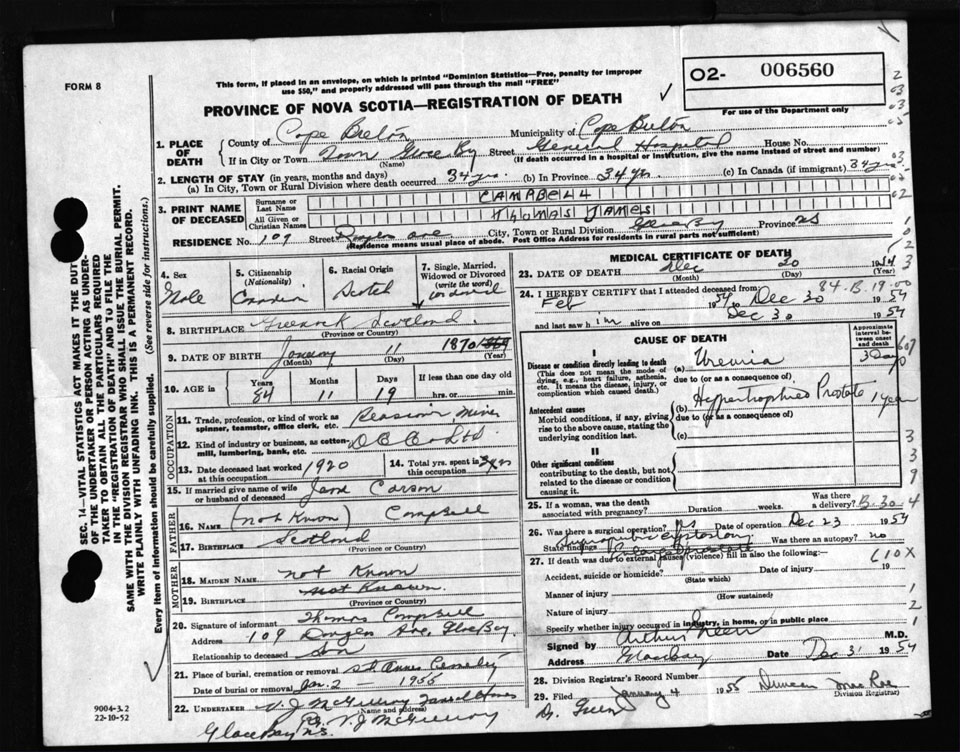 FORM 8
This form, if placed in an envelope, on which is printed "Dominion Statistics—Free, penalty for improper
use $50," and properly addressed will pass through the mail "FREE"
O2- 006560
For use of the Department only
PROVINCE OF NOVA SCOTIA—REGISTRATION OF DEATH
1. PLACE OF DEATH
County of Cape Breton Municipality of Cape Breton
If in City or Town Town Glace Bay Street General Hospital House No.
(Name) (If death occurred in a hospital or institution, give the name instead of street and number)
2. LENGTH OF STAY (in years, months and days)
(a) In City, Town or Rural Division where death occurred 34 yrs. (b) In Province 34 yrs (c) In Canada (if immigrant) 34 yrs.
3. PRINT NAME OF DECEASED
Surname or Last Name CAMPBELL
All Given or Christian Names THOMAS JAMES
RESIDENCE No. 109 Street Ave City, Town or Rural Division Glace Bay Province NS
(Residence means usual place of abode. Post Office Address for residents in rural parts not sufficient)
4. Sex
Male
5. Citizenship
(Nationality)
Canadian
6. Racial Origin
Scotch
7. Single, Married,
Widowed or Divorced
(write the word)
Widowed
8. BIRTHPLACE Greenock Scotland
(Province or Country)
9. DATE OF BIRTH January 11 1870
(Month) (Day) (Year)
10. AGE in Years Months Days If less than one day old
84 11 19 hrs. or min.
OCCUPATION
11. Trade, profession, or kind of work as
spinner, teamster, office clerk, etc. Miner
12. Kind of industry or business, as cotton-
mill, lumbering, bank, etc.
13. Date deceased last worked at this occupation 1920
14. Total yrs. spent in this occupation yrs
15. If married give name of wife
or husband of deceased Jane Carson
FATHER
16. NAME (not Known) Campbell
17. BIRTHPLACE Scotland
(Province or Country)
MOTHER
18. MAIDEN NAME not Known
19. BIRTHPLACE not Known
(Province or Country)
20. Signature of informant Thomas Campbell
Address 109 Ave, Glace Bay
Relationship to deceased Son
21. Place of burial, cremation or removal St Annes Cemetery
Date of burial or removal Jan. 2 - 1955
22. UNDERTAKER V. J. McGillivray Funeral Home
(Name and address)
Glace Bay N.S. V. J. McGillivray
MEDICAL CERTIFICATE OF DEATH
23. DATE OF DEATH Dec 30 1954
(Month) (Day) (Year)
84. B. 19.00
24. I HEREBY CERTIFY that I attended deceased from
Feb 1954 to Dec 30 1954
and last saw him alive on Dec 30 1954
CAUSE OF DEATH
Approximate interval between onset and death
I
Disease or condition directly leading to death (a) Uremia 3 Days
(This does not mean the mode of
dying, e.g., heart failure, asthenia,
etc. It means the disease, injury, or
complication which caused death.)
due to (or as a consequence of)
Antecedent causes (b) Hypertrophied Prostate 1 year
Morbid conditions, if any, giving
rise to the above cause, stating the
underlying condition last.
due to (or as a consequence of)
(c)
II
Other significant conditions
contributing to the death, but not
related to the disease or condition
causing it.
25. If a woman, was the death
associated with pregnancy? Duration weeks. Was there a delivery? B-30.4
26. Was there a surgical operation? yes Date of operation Dec 23 1954
State findings Suprapubic cystostomy Was there an autopsy? no
27. If death was due to external causes (violence) fill in also the following: 610X
Accident, suicide or homicide? Date of injury 19
(State which)
Manner of injury
(How sustained)
Nature of injury
Specify whether injury occurred in industry, in home, or in public place
Signed by Arthur M.D.
Address Glace Bay Dec 31 1954
28. Division Registrar's Record Number
29. Filed January 4 1955 Duncan MacRae
Division Registrar)
SEC. 14—VITAL STATISTICS ACT MAKES IT THE DUTY
OF THE UNDERTAKER OR PERSON ACTING AS UNDER-
TAKER TO OBTAIN ALL THE PARTICULARS REQUIRED
IN THE "REGISTRATION OF DEATH" AND TO FILE THE
SAME WITH THE DIVISION REGISTRAR WHO SHALL ISSUE THE BURIAL PERMIT.
WRITE PLAINLY WITH UNFADING INK. THIS IS A PERMANENT RECORD.
Every item of information should be carefully supplied. (See reverse side for instructions.)
9004-3.2
22-10-52